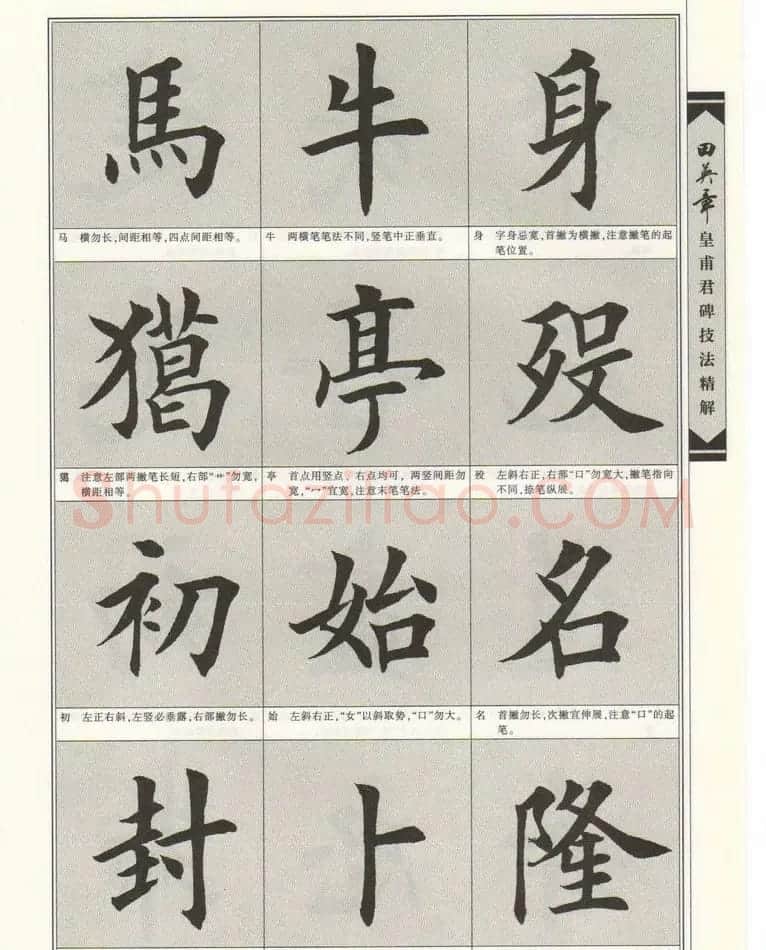 馬 牛 身
马 横勿长，间距相等，四点间距相等。
牛 两横笔笔法不同，竖笔中正垂直。
身 字身忌宽，首撇为横撇，注意撇笔的起
笔位置。
亭 殁
注意左部两撇笔长短，右部“艹”勿宽，
横距相等。
亭 首点用竖点，右点均可，两竖间距勿
宽，“冖”宜宽，注意末笔笔法。
殁 左斜右正，右部“口”勿宽大，撇笔指向
不同，捺笔纵展。
初 始 名
初 左正右斜，左竖必垂露，右部撇勿长。
始 左斜右正，“女”以斜取势，“口”勿大。
名 首撇勿长，次撇宜伸展，注意“口”的起
笔。
封 卜 隆
田英章
皇甫君碑技法精解
Shufaziliao.COM